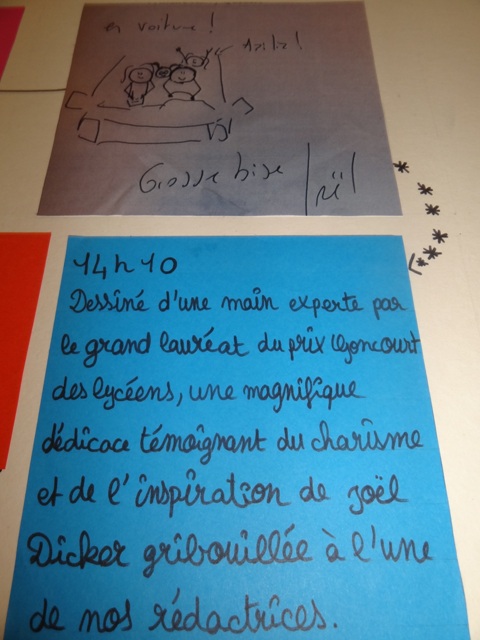 en voiture !
Grosse bise
14h10
Dessiné d'une main experte par
le grand lauréat du prix Goncourt
des lycéens, une magnifique
dédicace témoignant du charisme
et de l'inspiration de joël
Dicker gribouillée à l'une
de nos rédactrices.